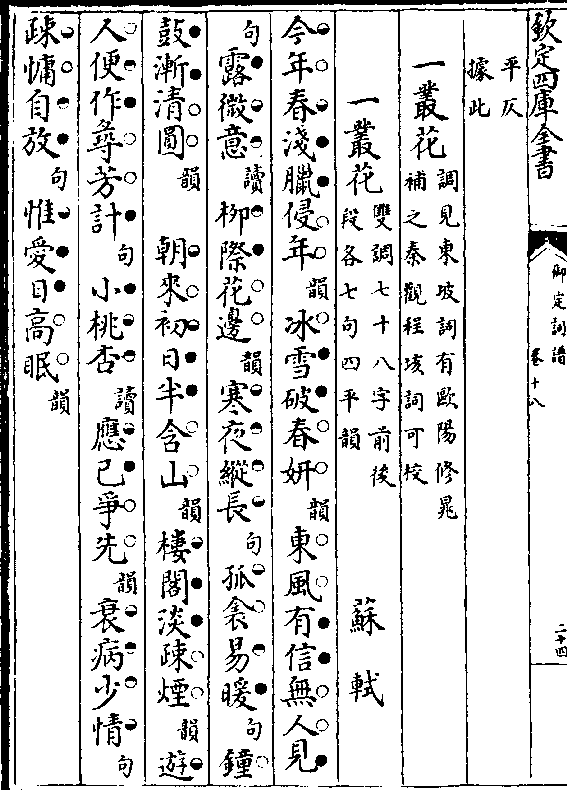 欽定四庫全書
御定詞譜
卷十八
二十四
平仄
據此
一叢花
調見東坡詞有歐陽修晁
補之秦觀程垓詞可校
一叢花
雙調七十八字前後
段各七句四平韻
蘇軾
今年春淺臘侵年韻冰雪破春妍韻東風有信無人見
句露微意讀柳際花邊韻寒夜縱長句孤衾易暖句鐘
鼓漸清圓韻 朝來初日半含山韻樓閣淡疎煙韻遊
人便作尋芳計句小桃杏讀應已爭先韻衰病少情句
疎慵自放句惟愛日高眠韻